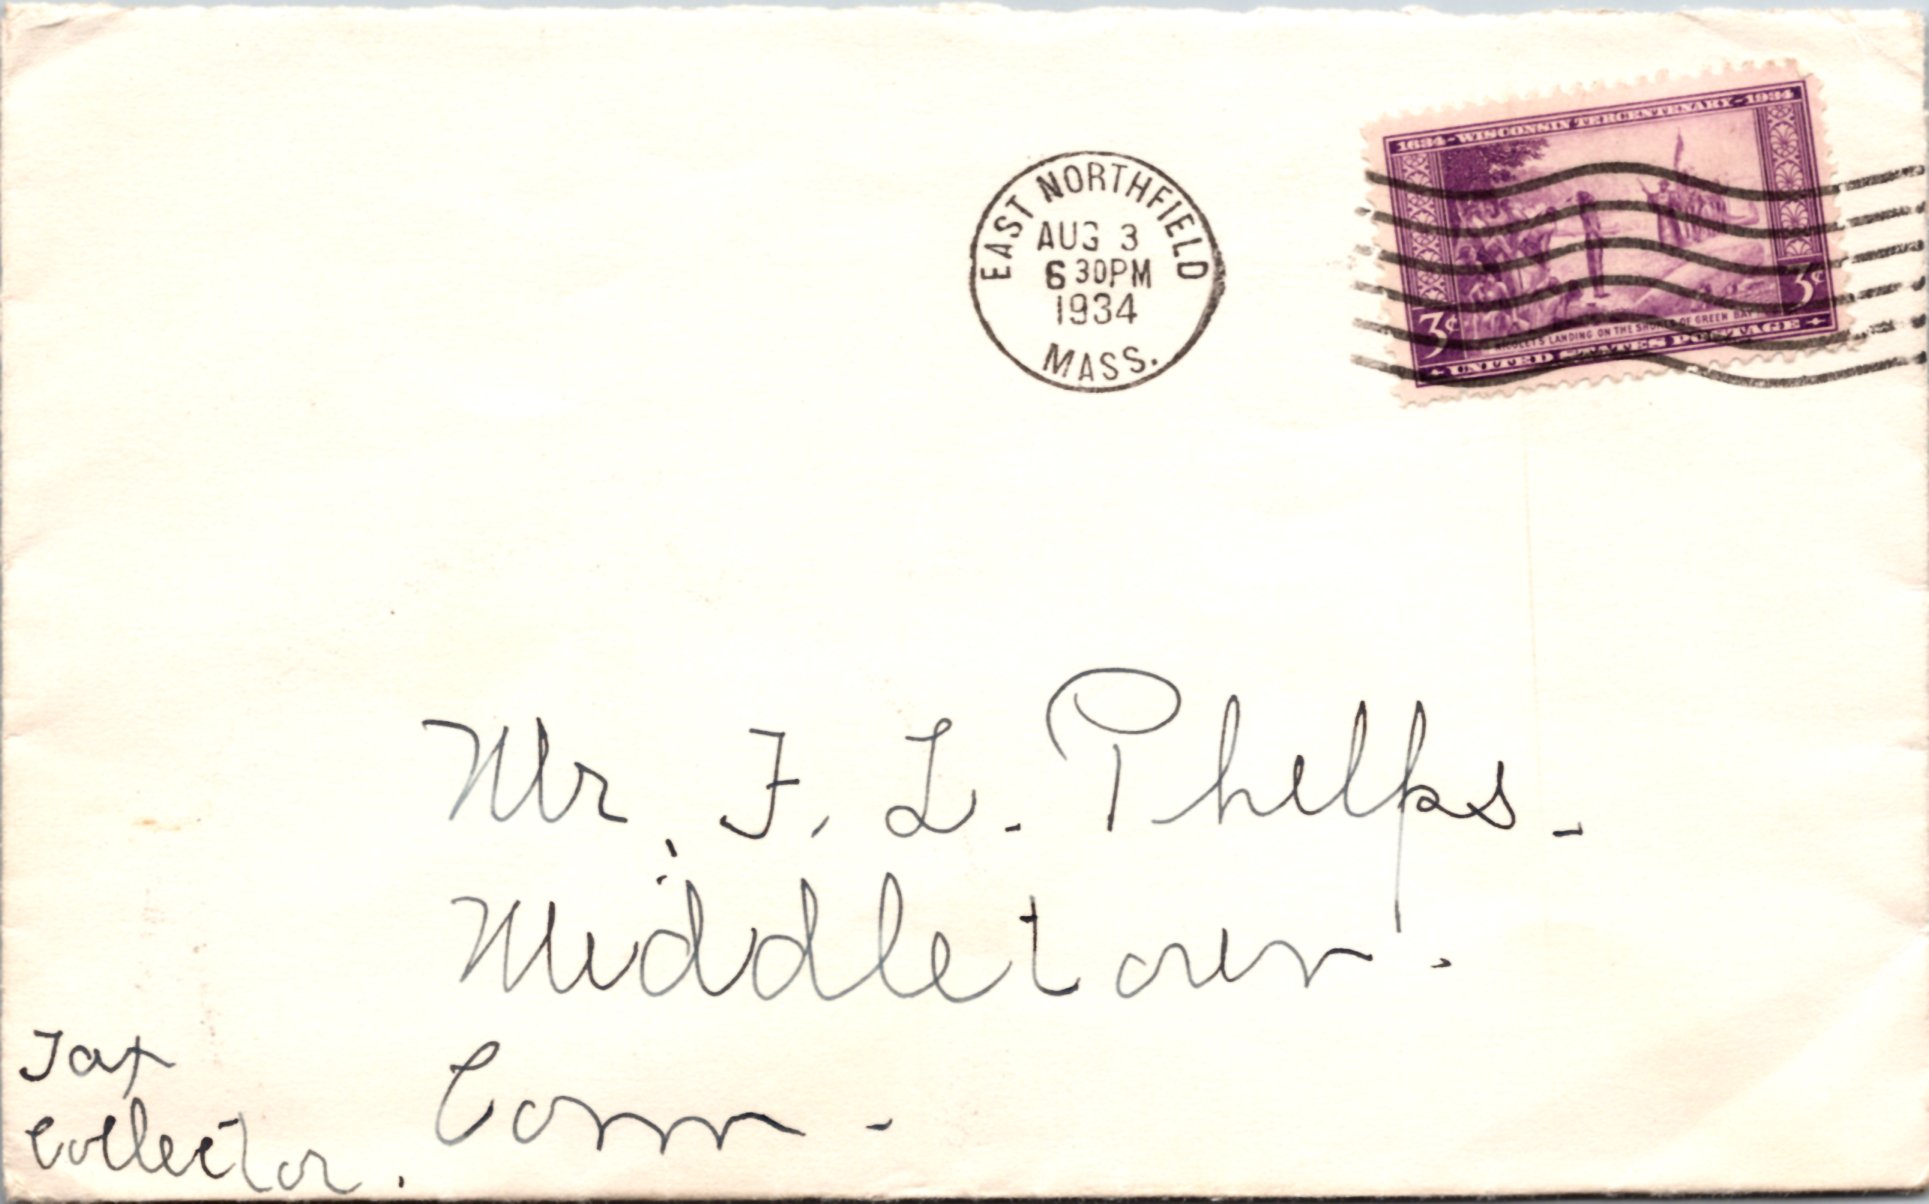 EAST NORTHFIELD
AUG 3
6 30PM
1934
MASS.
1634-WISCONSIN TERCENTENARY-1934
3¢ 3¢
NICOLET'S LANDING ON THE SHORES OF GREEN BAY
UNITED STATES POSTAGE
Mr. F. L. Phelps.
Middletown.
Conn.
Tax
Collector.